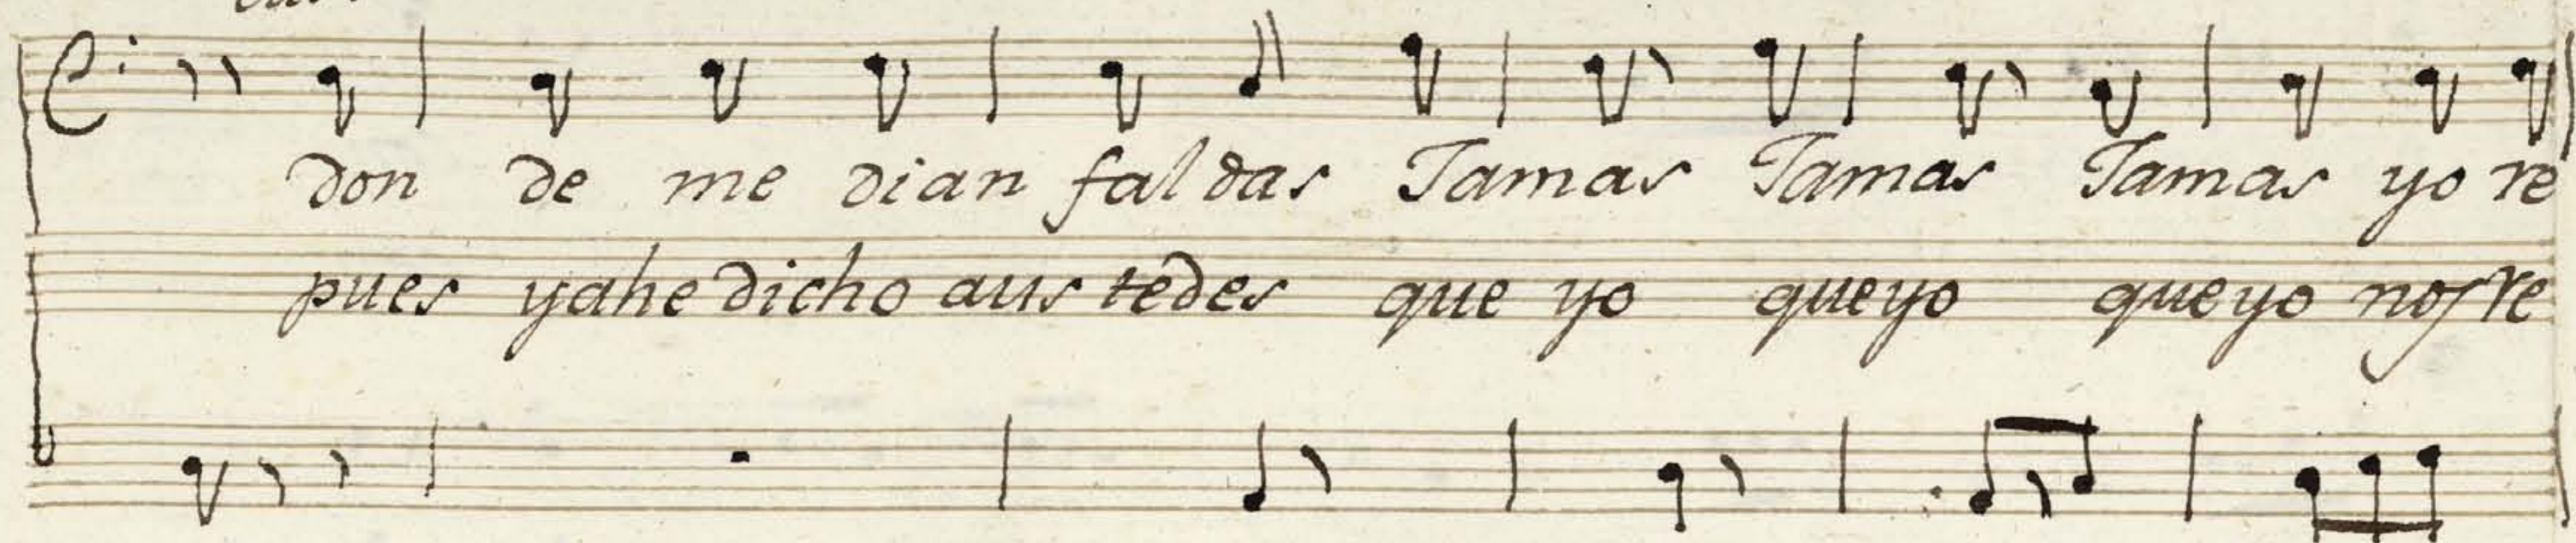 don de me dian faldas Tamas Tamas Tamas yo re
pues yahe dicho aus tedes que yo queyo queyo nosre